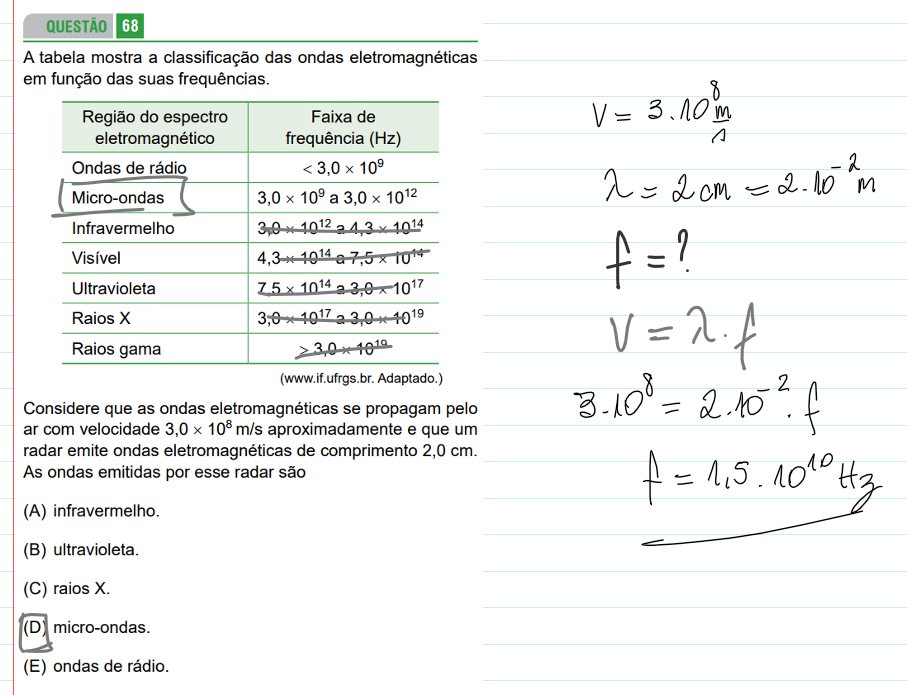 QUESTÃO 68
A tabela mostra a classificação das ondas eletromagnéticas
em função das suas frequências.
Região do espectro eletromagnético | Faixa de frequência (Hz)
Ondas de rádio | < 3,0 × 10⁹
Micro-ondas | 3,0 × 10⁹ a 3,0 × 10¹²
Infravermelho | 3,0 × 10¹² a 4,3 × 10¹⁴
Visível | 4,3 × 10¹⁴ a 7,5 × 10¹⁴
Ultravioleta | 7,5 × 10¹⁴ a 3,0 × 10¹⁷
Raios X | 3,0 × 10¹⁷ a 3,0 × 10¹⁹
Raios gama | > 3,0 × 10¹⁹
(www.if.ufrgs.br. Adaptado.)
Considere que as ondas eletromagnéticas se propagam pelo
ar com velocidade 3,0 × 10⁸ m/s aproximadamente e que um
radar emite ondas eletromagnéticas de comprimento 2,0 cm.
As ondas emitidas por esse radar são
(A) infravermelho.
(B) ultravioleta.
(C) raios X.
(D) micro-ondas.
(E) ondas de rádio.
V = 3.10⁸ m/s
λ = 2 cm = 2.10⁻² m
f = ?
V = λ.f
3.10⁸ = 2.10⁻².f
f = 1,5.10¹⁰ Hz